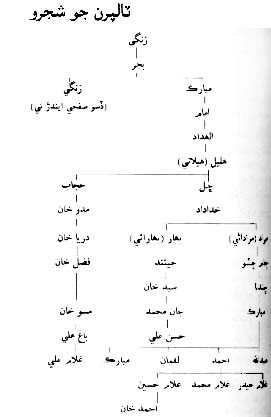 ٽالپرن جو شجرو
زنگي
بجر
مبارڪ زنگي
(ڏسو صفحي ايندڙ تي)
امام
الهداد
هليل (هيلاڻي)
چيل حجاب
خداداد مدو خان
بهار (بهاراڻي) دريا خان
جيئند فضل خان
چندا
سيد خان
مبارڪ
جان محمد مسو خان
حسن علي باغ علي
عبدالله احمد لقمان مبارڪ غلام علي
غلام حيدر غلام محمد غلام حسين
احمد خان